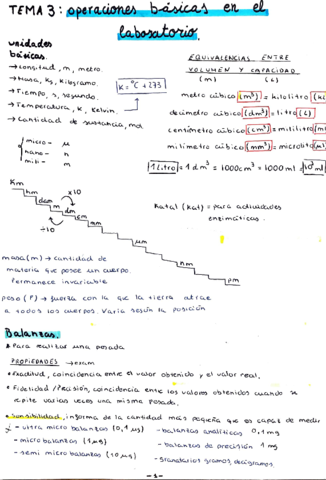 TEMA 3: operaciones básicas en el
laboratorio.
unidades
básicas.
→ Longitud, m, metro.
→ Masa, Kg, Kilogramo.
→ Tiempo, s, segundo.
→ Temperatura, K, Kelvin.
→ Cantidad de sustancia, mol
K = °C + 273
micro - μ
nano - n
mili - m
EQUIVALENCIAS ENTRE
VOLUMEN Y CAPACIDAD
(m) (L)
metro cúbico (m³) = kilolitro (
decímetro cúbico (dm³) = litro (L)
centímetro cúbico (cm³) = mililitro (
milímetro cúbico (mm³) = microlitro (
1 Litro = 1 dm³ = 1000cm³ = 1000 ml
Katal (Kat) = para actividades
enzimáticas.
Km
hm
dam
m
dm
cm
mm
μm
nm
pm
x10
÷10
masa (m) → cantidad de
materia que posee un cuerpo.
Permanece invariable
peso (P) → fuerza con la que la tierra atrae
a todos los cuerpos. Varía según la posición
Balanzas.
• Para realizar una pesada
PROPIEDADES → exam
• Exactitud, coincidencia entre el valor obtenido y el valor real.
• Fidelidad / Precisión, coincidencia entre los valores obtenidos cuando se
repite varias veces una misma pesada.
• Sensibilidad, informa de la cantidad más pequeña que es capaz de medir
- ultra micro balanzas (0,1 μg)
- micro balanzas (1 μg)
- semi micro balanzas (10 μg)
- balanzas analíticas 0,1 mg
- balanzas de precisión 1 mg
- granatarios gramos, decigramos.
- 1 -